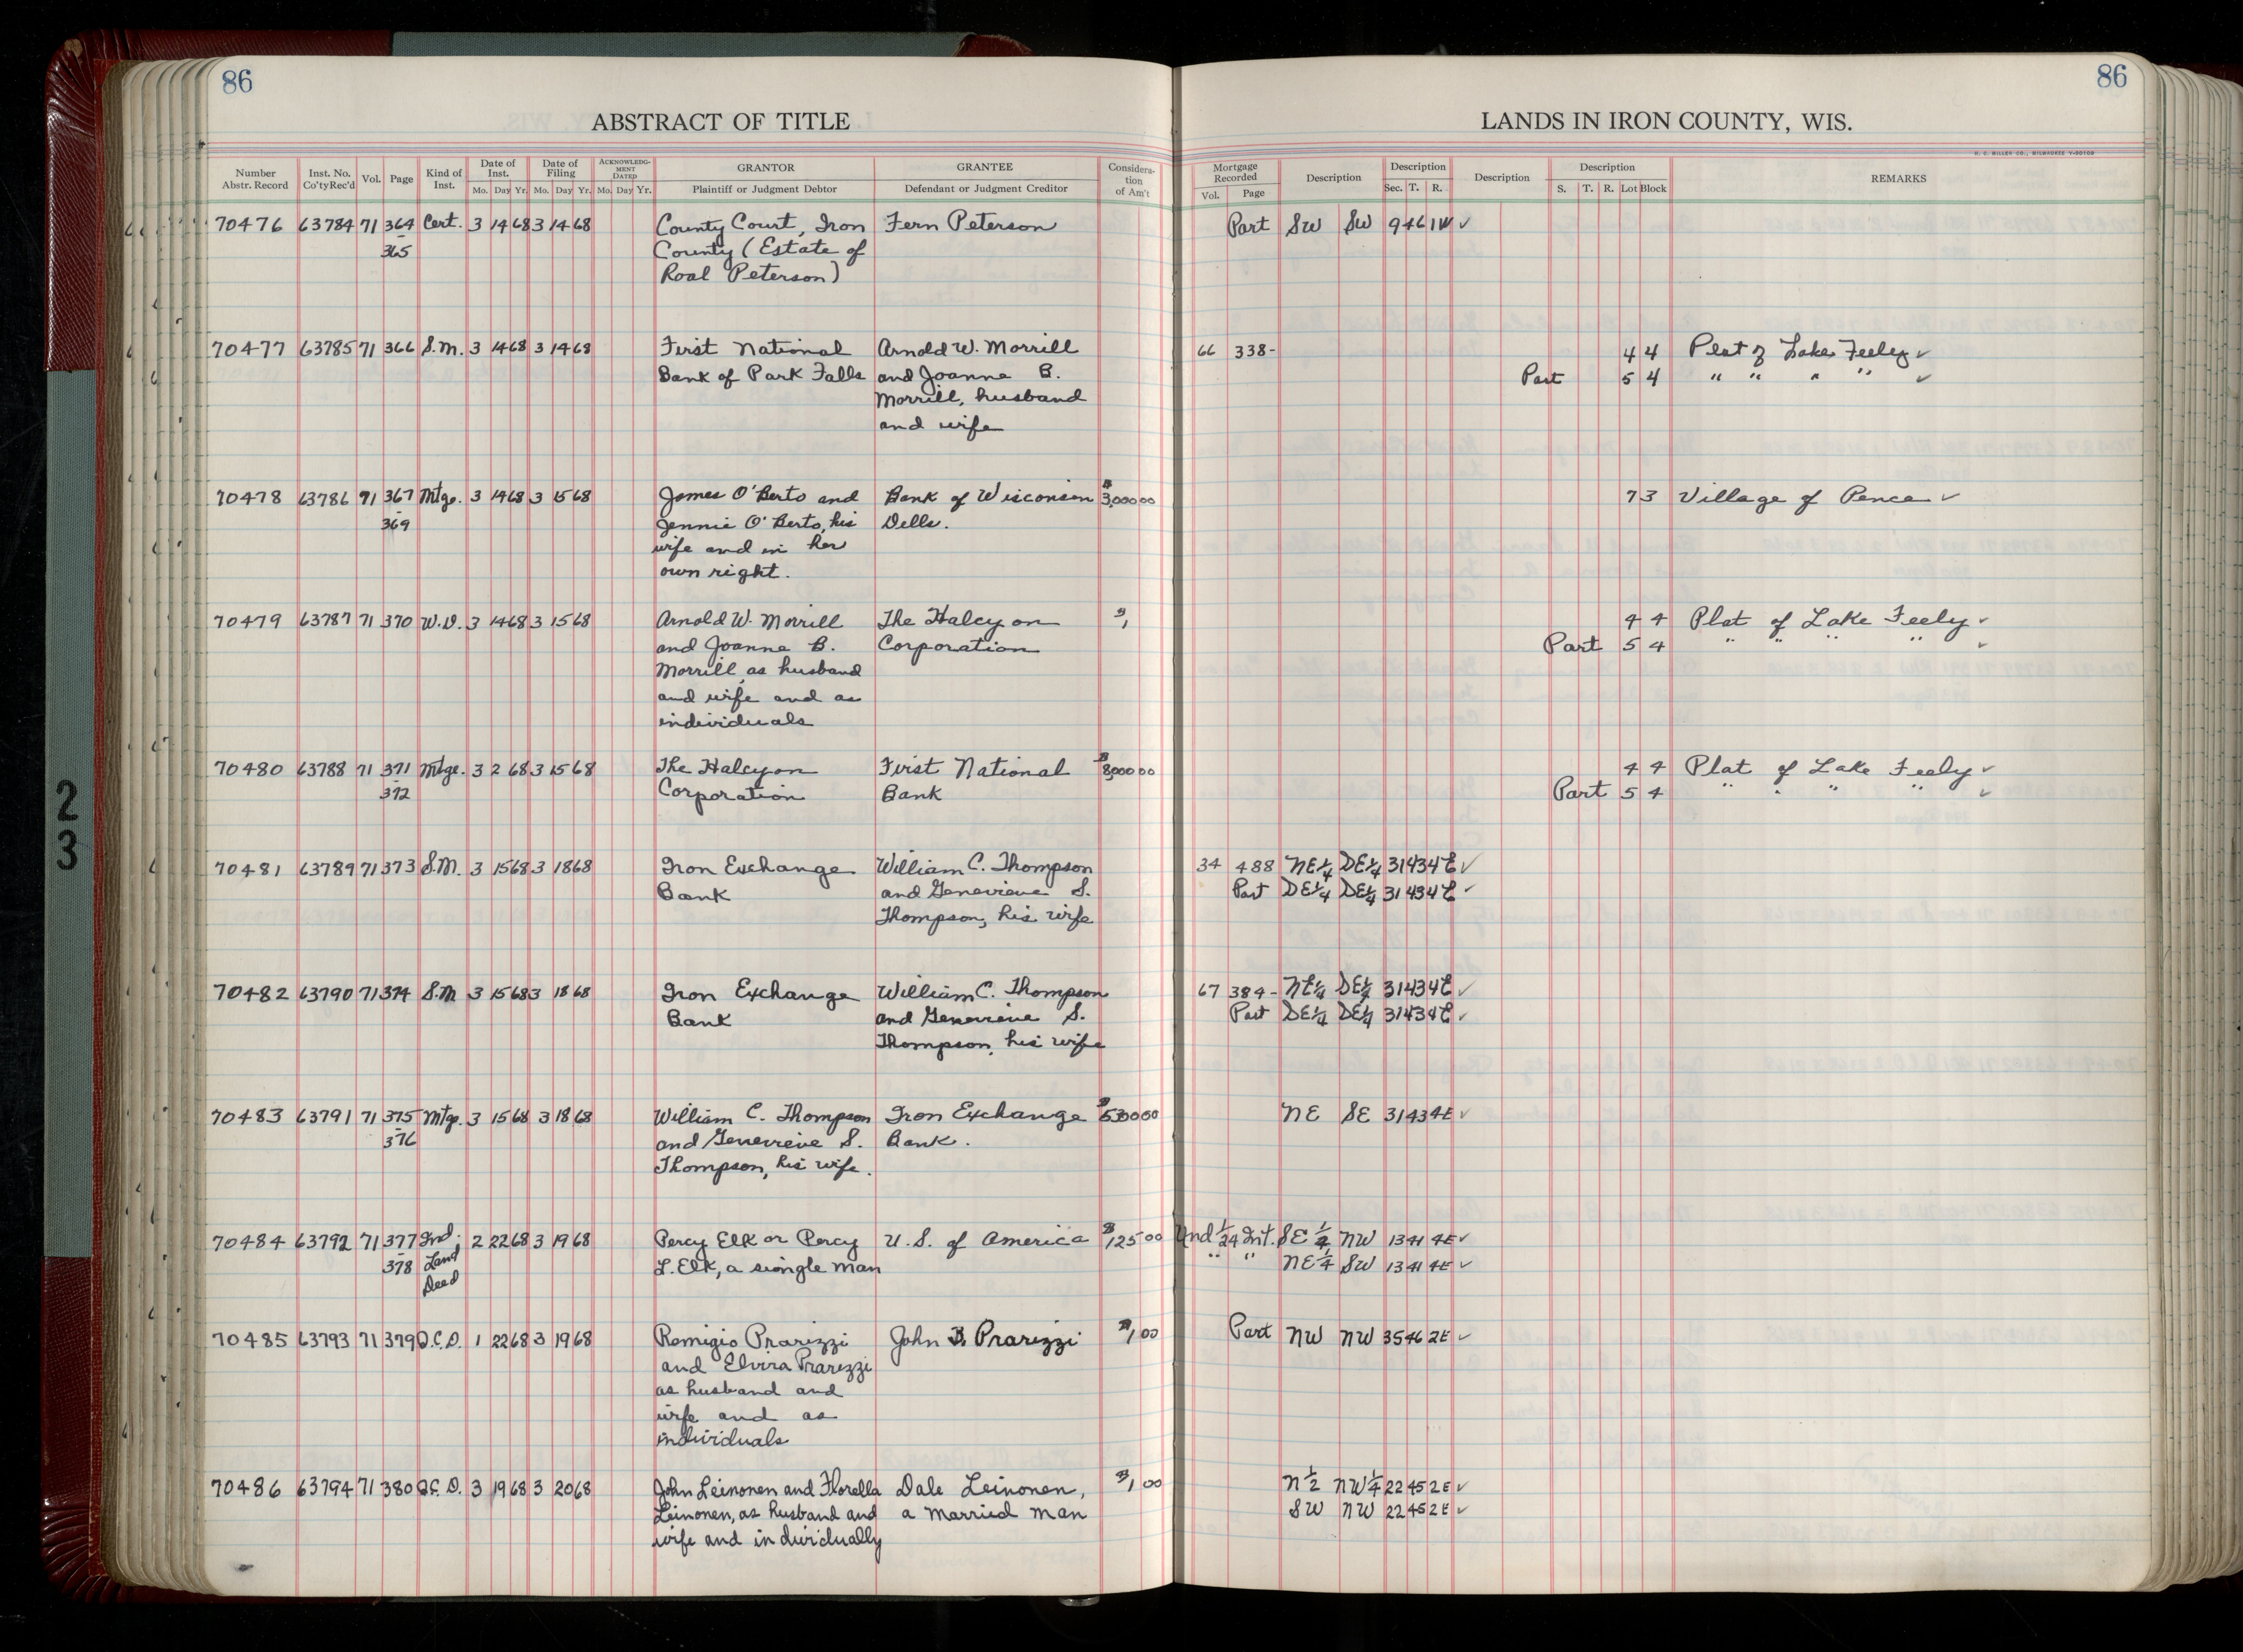 86
86
ABSTRACT OF TITLE
LANDS IN IRON COUNTY, WIS.
H. C. MILLER CO., MILWAUKEE
Number Abstr. Record Inst. No. Co'ty Rec'd Vol. Page Kind of Inst. Date of Inst. Mo. Day Yr. Date of Filing Mo. Day Yr. ACKNOWLEDGMENT DATED Mo. Day Yr. GRANTOR Plaintiff or Judgment Debtor GRANTEE Defendant or Judgment Creditor Consideration of Am't Mortgage Recorded Vol. Page Description Description Sec. T. R. Description Description S. T. R. Lot Block REMARKS
70476 63784 71 364 Cert. 3 14 68 3 14 68 County Court, Iron Fern Peterson Part SW SW 9 46 1W ✓
365 County (Estate of
Roal Peterson)
70477 63785 71 366 S.M. 3 14 68 3 14 68 First National Arnold W. Morrill 66 338- 4 4 Plat of Lake Feely ✓
Bank of Park Falls and Joanne B. Part 5 4 " " " " ✓
Morrill, husband
and wife
70478 63786 71 367 Mtge. 3 14 68 3 15 68 James O'Berto and Bank of Wisconsin $3,000 00 7 3 Village of Pence ✓
369 Jennie O'Berto, his Dells.
wife and in her
own right.
70479 63787 71 370 W.D. 3 14 68 3 15 68 Arnold W. Morrill The Halcyon $1, 4 4 Plat of Lake Feely ✓
and Joanne B. Corporation Part 5 4 " " " " ✓
Morrill, as husband
and wife and as
individuals
70480 63788 71 371 Mtge. 3 2 68 3 15 68 The Halcyon First National $8,000 00 4 4 Plat of Lake Feely ✓
372 Corporation Bank Part 5 4 " " " " ✓
70481 63789 71 373 S.M. 3 15 68 3 18 68 Iron Exchange William C. Thompson 34 488 NE¼ SE¼ 31 43 4E ✓
Bank and Genevieve S. Part SE¼ SE¼ 31 43 4E ✓
Thompson, his wife
70482 63790 71 374 S.M 3 15 68 3 18 68 Iron Exchange William C. Thompson 67 384- NE¼ SE¼ 31 43 4E ✓
Bank and Genevieve S. Part SE¼ SE¼ 31 43 4E ✓
Thompson, his wife
70483 63791 71 375 Mtge. 3 15 68 3 18 68 William C. Thompson Iron Exchange NE SE 31 43 4E ✓
376 and Genevieve S. Bank.
Thompson, his wife.
70484 63792 71 377 Ind. 2 22 68 3 19 68 Percy Elk or Percy U.S. of America $125 00 Und 1/24 Int. SE ¼ NW 13 41 4E ✓
378 Land L. Elk, a single man " " NE¼ SW 13 41 4E ✓
Deed
70485 63793 71 379 Q.C.D. 1 22 68 3 19 68 Remigio Prarizzi John B. Prarizzi $1 00 Part NW NW 35 46 2E ✓
and Elvira Prarizzi
as husband and
wife and as
individuals
70486 63794 71 380 Q.C.D. 3 19 68 3 20 68 John Leinonen and Florella Dale Leinonen, $1 00 N½ NW¼ 22 45 2E ✓
Leinonen, as husband and a married man SW NW 22 45 2E ✓
wife and individually
2
3